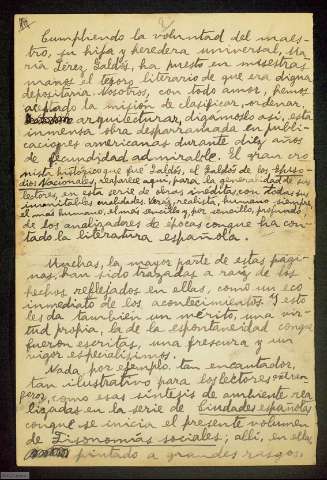 Cumpliendo la voluntad del maes-
tro, su hija y heredera universal, Ma-
ría Pérez Galdós, ha puesto en nuestras
manos el tesoro literario de que era digna
depositaria. Nosotros, con todo amor, hemos
aceptado la misión de clasificar, ordenar,
arquitecturar, digámoslo así, esta
inmensa obra desparramada en publi-
caciones americanas durante diez años
de fecundidad admirable. El gran cro-
nista histórico que fué Galdós, el Galdós de los Episo-
dios Nacionales, reaparece aquí, para la generalidad de sus
lectores, en esta serie de obras inéditas, con todas sus
inimitables cualidades: veraz, realista, humano siempre,
el más humano, el más sencillo y, por sencillo, profundo
de los analizadores de épocas con que ha con-
tado la literatura española.
Muchas, la mayor parte de estas pági-
nas, han sido trazadas a raíz de los
hechos reflejados en ellas, como un eco
inmediato de los acontecimientos. Y esto
les da también un mérito, una vir-
tud propia, la de la espontaneidad con que
fueron escritas, una frescura y un
vigor especialísimos.
Nada, por ejemplo, tan encantador,
tan ilustrativo para los lectores extran-
geros, como esas síntesis de ambiente rea-
lizadas en la serie de Ciudades españolas
con que se inicia el presente volumen
de Fisonomías sociales; allí, en ellas,
pintado a grandes rasgos